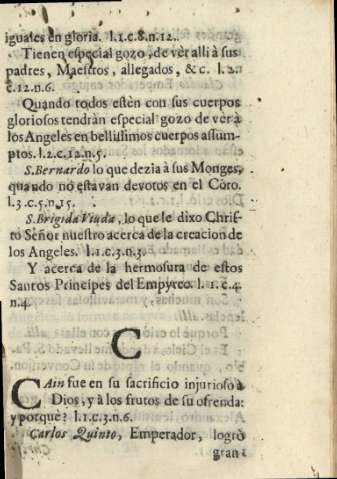 iguales en gloria. l.1.c.8.n.12.
Tienen especial gozo, de vèr alli à sus
padres, Maestros, allegados, &c. l.2.
c.12.n.6.
Quando todos estèn con sus cuerpos
gloriosos tendràn especial gozo de vèr à
los Angeles en bellissimos cuerpos assum-
ptos. l.2.c.12.n.5.
S. Bernardo lo que dezia à sus Monges,
quando no estavan devotos en el Còro.
l.3.c.5.n.15.
S. Brigida Viuda, lo que le dixo Chris-
to Señor nuestro acerca de la creacion de
los Angeles. l.1.c.3.n.3.
Y acerca de la hermosura de estos
Santos Principes del Empyreo. l.1.c.4.
n.4.
C
CAin fue en su sacrificio injurioso à
Dios, y à los frutos de su ofrenda:
y porquè? l.1.c.3.n.6.
Carlos Quinto, Emperador, logrò
gran